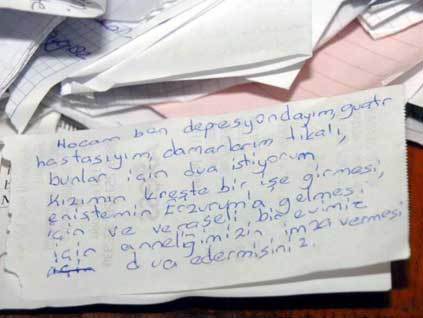 Hocam ben depresyondayım, guatr
hastasıyım, damarlarım tıkalı,
bunlar için dua istiyorum
Kızımın kreşte bir işe girmesi,
eniştemin Erzurum'a gelmesi
için ve veraseli bir evimiz
için anneliğimizin imza vermesi
dua edermisiniz.